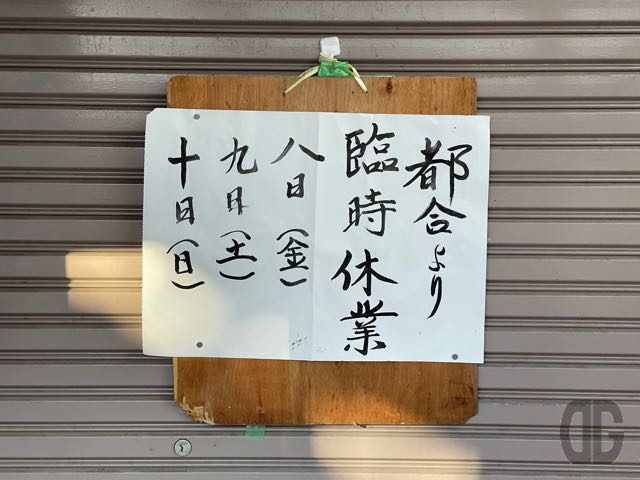 都合より
臨時休業
八日（金）
九日（土）
十日（日）
DG